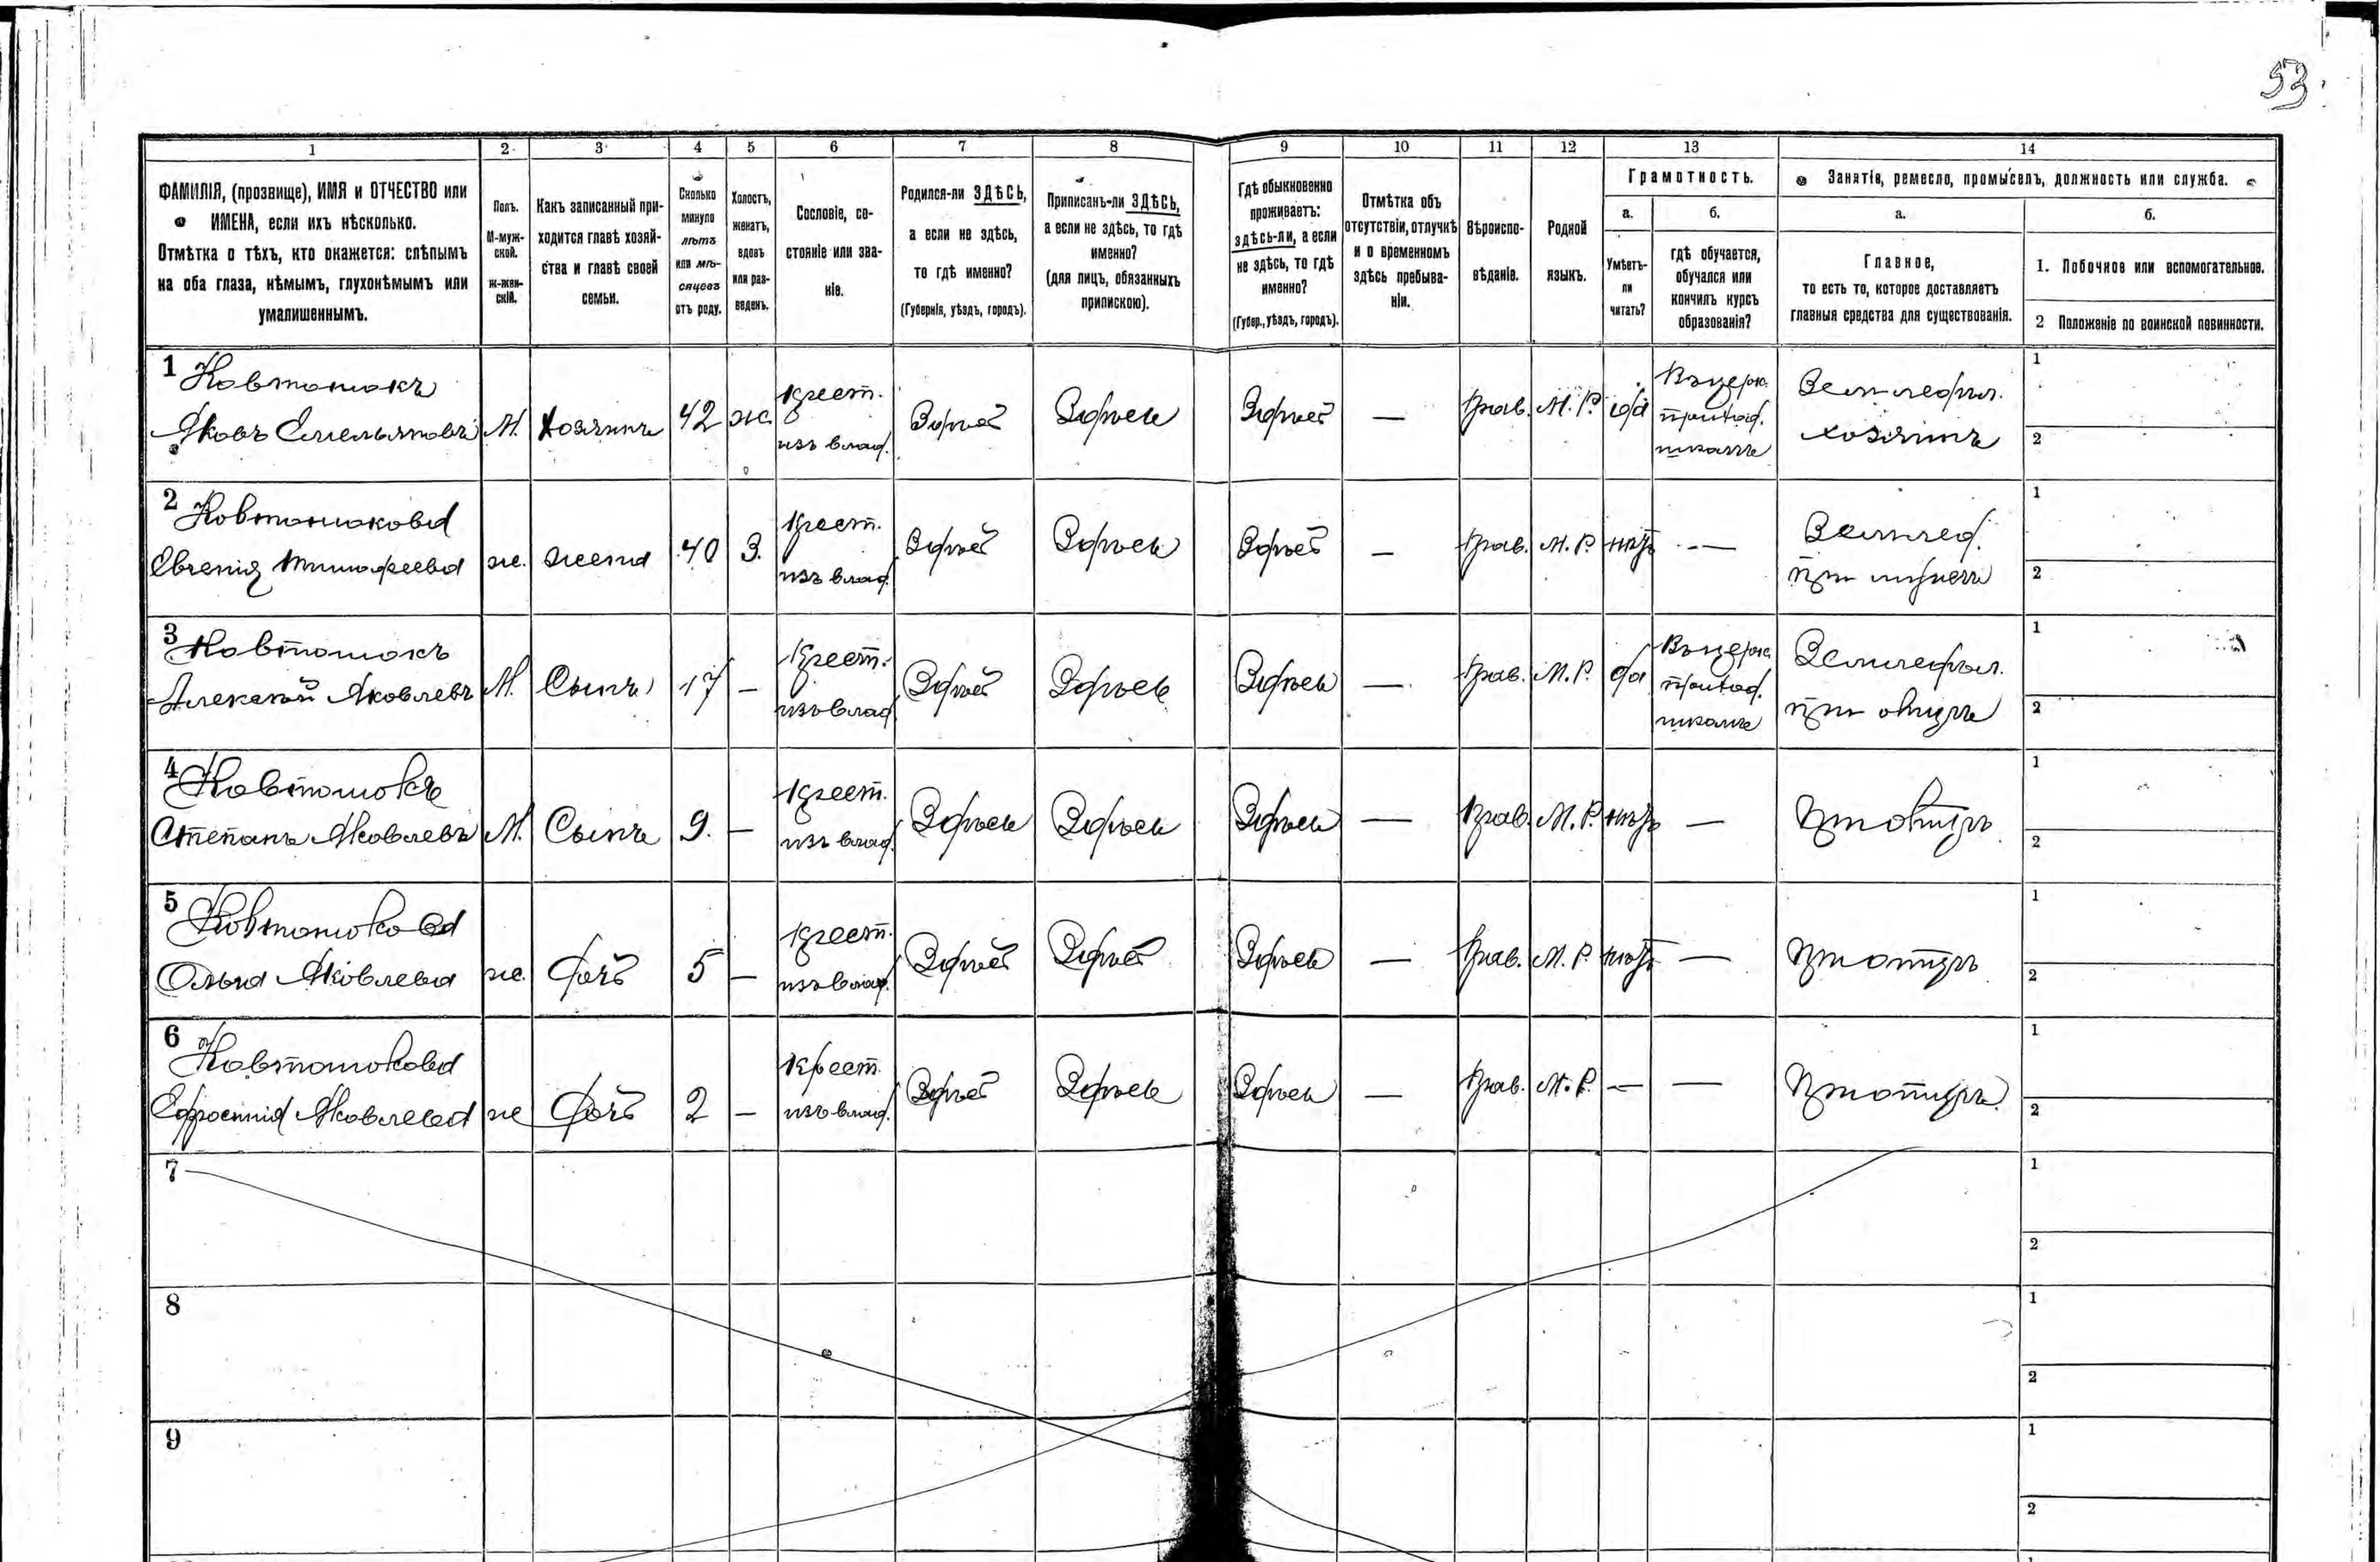 53
1 2 3 4 5 6 7 8 9 10 11 12 13 14
ФАМИЛІЯ, (прозвище), ИМЯ и ОТЧЕСТВО или
ИМЕНА, если ихъ нѣсколько.
Отмѣтка о тѣхъ, кто окажется: слѣпымъ
на оба глаза, нѣмымъ, глухонѣмымъ или
умалишеннымъ.
Полъ.
М-муж-
ской.
ж-жен-
скій.
Какъ записанный при-
ходится главѣ хозяй-
ства и главѣ своей
семьи.
Сколько
минуло
лѣтъ
или мѣ-
сяцевъ
отъ роду.
Холостъ,
женатъ,
вдовъ
или раз-
веденъ.
Сословіе, со-
стояніе или зва-
ніе.
Родился-ли ЗДѢСЬ,
а если не здѣсь,
то гдѣ именно?
(Губернія, уѣздъ, городъ).
Приписанъ-ли ЗДѢСЬ,
а если не здѣсь, то гдѣ
именно?
(для лицъ, обязанныхъ
припискою).
Гдѣ обыкновенно
проживаетъ:
здѣсь-ли, а если
не здѣсь, то гдѣ
именно?
(Губер., уѣздъ, городъ).
Отмѣтка объ
отсутствіи, отлучкѣ
и о временномъ
здѣсь пребыва-
ніи.
Вѣроиспо-
вѣданіе.
Родной
языкъ.
Грамотность.
а.
Умѣетъ-
ли
читать?
б.
гдѣ обучается,
обучался или
кончилъ курсъ
образованія?
Занятіе, ремесло, промыселъ, должность или служба.
а.
Главное,
то есть то, которое доставляетъ
главныя средства для существованія.
б.
1. Побочное или вспомогательное.
2 Положеніе по воинской повинности.
1 Ковтонюкъ
Яковъ Емельяновъ М. Хозяинъ 42 ж. крест. изъ влад. Здѣсь Здѣсь Здѣсь — Прав. М. Р. да Въ церк. приход. школѣ Землед. хозяинъ 1 2
2 Ковтонюкова
Евгенія Тимофеева ж. жена 40 З. крест. изъ влад. Здѣсь Здѣсь Здѣсь — Прав. М. Р. нѣтъ — Землед. при мужѣ 1 2
3 Ковтонюкъ
Алексѣй Яковлевъ М. Сынъ 17 — крест. изъ влад. Здѣсь Здѣсь Здѣсь — Прав. М. Р. да Въ церк. приход. школѣ Землед. при отцѣ 1 2
4 Ковтонюкъ
Степанъ Яковлевъ М. Сынъ 9. — крест. изъ влад. Здѣсь Здѣсь Здѣсь — Прав. М. Р. нѣтъ — При отцѣ 1 2
5 Ковтонюкова
Ольга Яковлева ж. дочь 5 — крест. изъ влад. Здѣсь Здѣсь Здѣсь — Прав. М. Р. нѣтъ — При отцѣ 1 2
6 Ковтонюкова
Ефросинія Яковлева ж дочь 2 — крест. изъ влад. Здѣсь Здѣсь Здѣсь — Прав. М. Р. — — При отцѣ 1 2
7 1 2
8 1 2
9 1 2